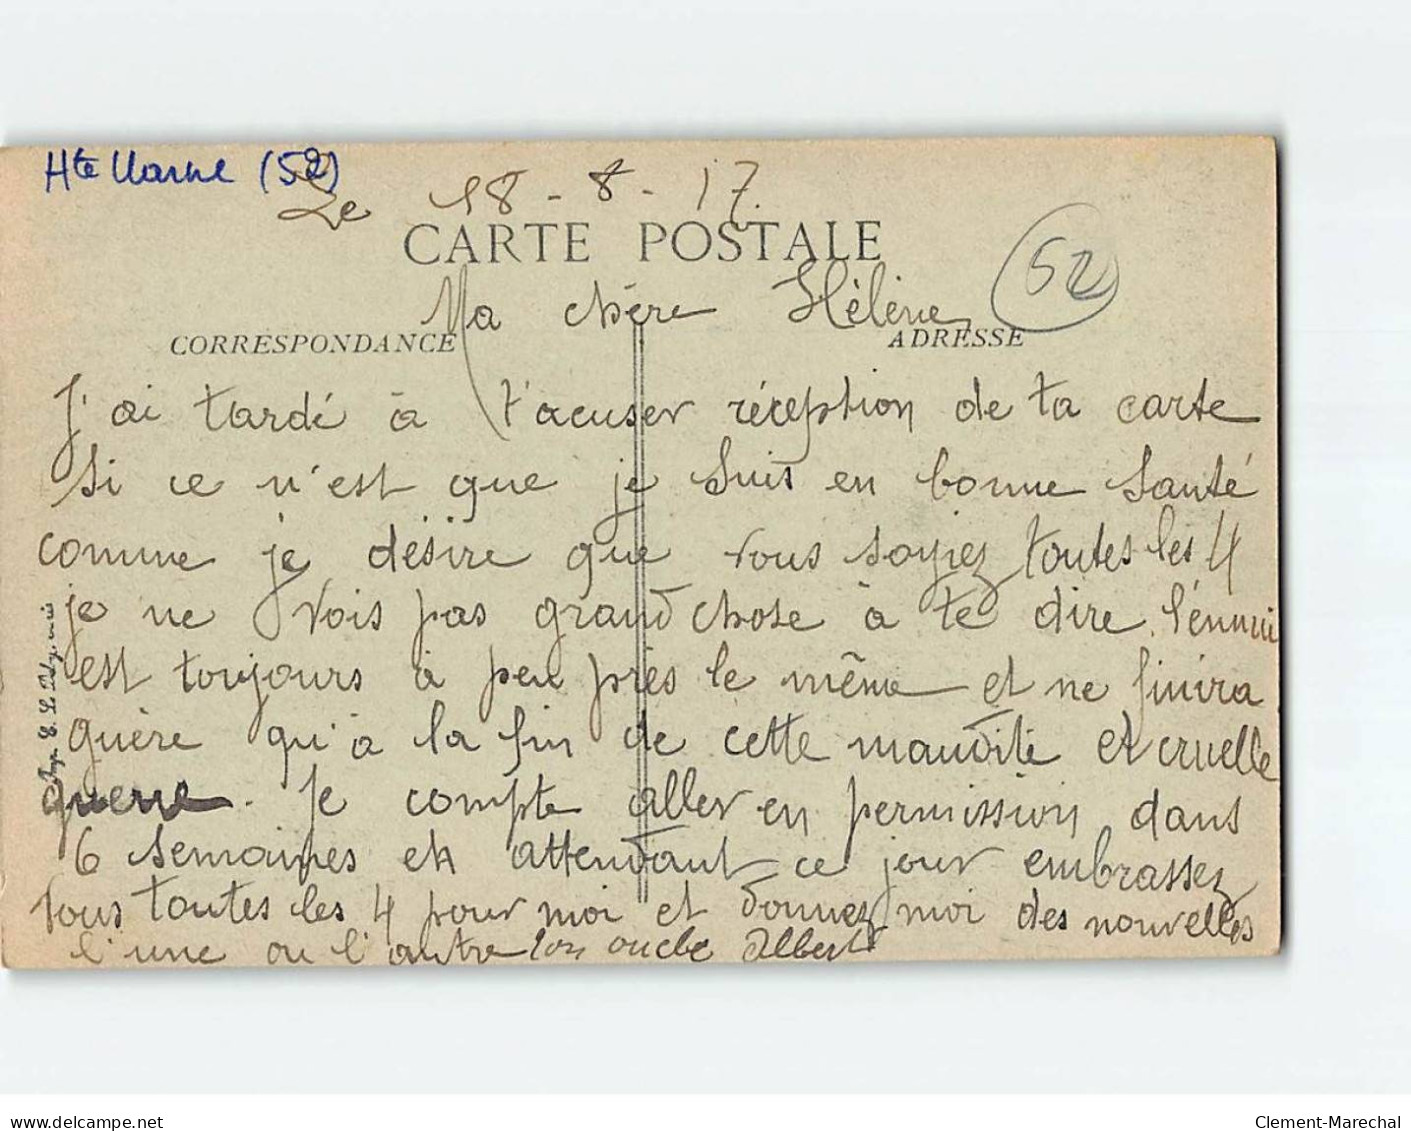 Hte Marne (52)
Le 18-8-17.
CARTE POSTALE
52
Ma chère Hélène
CORRESPONDANCE
ADRESSE
J'ai tardé à t'acuser réception de ta carte
si ce n'est que je suis en bonne santé
comme je désire que vous soyiez toutes les 4
je ne vois pas grand chose à te dire. l'ennui
est toujours à peu près le même et ne finira
guère qu'à la fin de cette maudite et cruelle
guerre. Je compte aller en permission dans
6 semaines en attendant ce jour embrassez
vous toutes les 4 pour moi et donnez moi des nouvelles
l'une ou l'autre ton oncle Albert
delcampe.net
Clement-Marechal